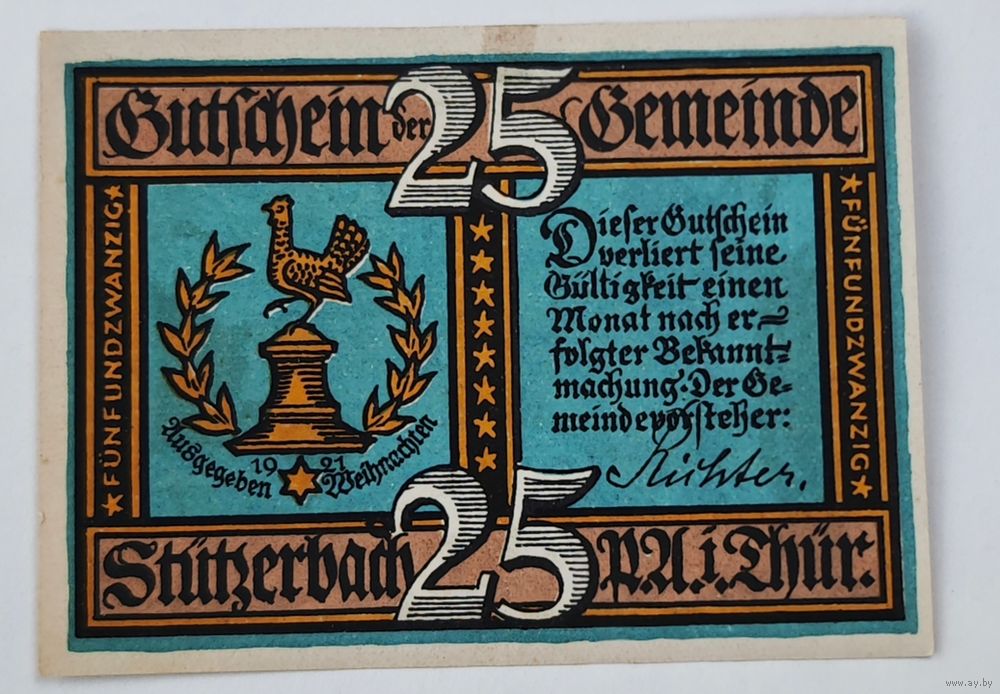 Gutschein der 25 Gemeinde
FÜNFUNDZWANZIG
Ausgegeben 1921 Weihnachten
Dieser Gutschein
verliert seine
Gültigkeit einen
Monat nach er=
folgter Bekannt=
machung. Der Ge=
meindevorsteher:
Richter.
FÜNFUNDZWANZIG
Stützerbach 25 P.A.i.Thür.
www.ay.by